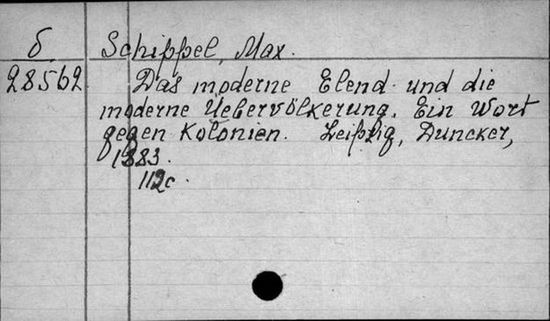 б Schippel, Max.
28562 Das moderne Elend und die
moderne Uebervölkerung. Ein Wort
gegen Kolonien. Leipzig, Duncker,
1883.
112c.